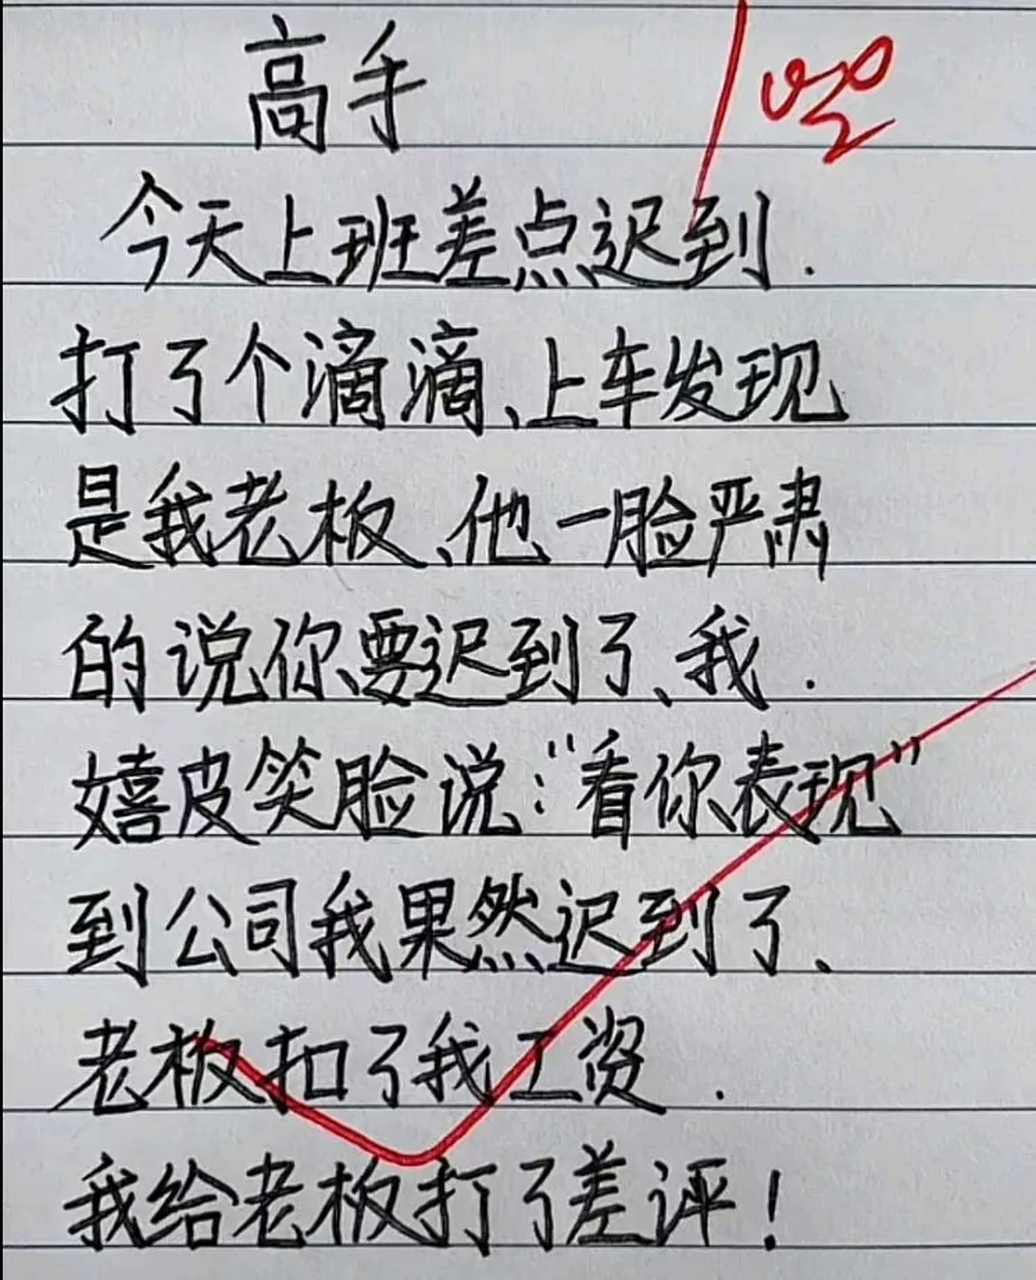 高手
今天上班差点迟到.
打了个滴滴、上车发现
是我老板、他一脸严肃
的说你要迟到了、我.
嬉皮笑脸说:“看你表现”
到公司我果然迟到了、
老板扣了我工资.
我给老板打了差评!